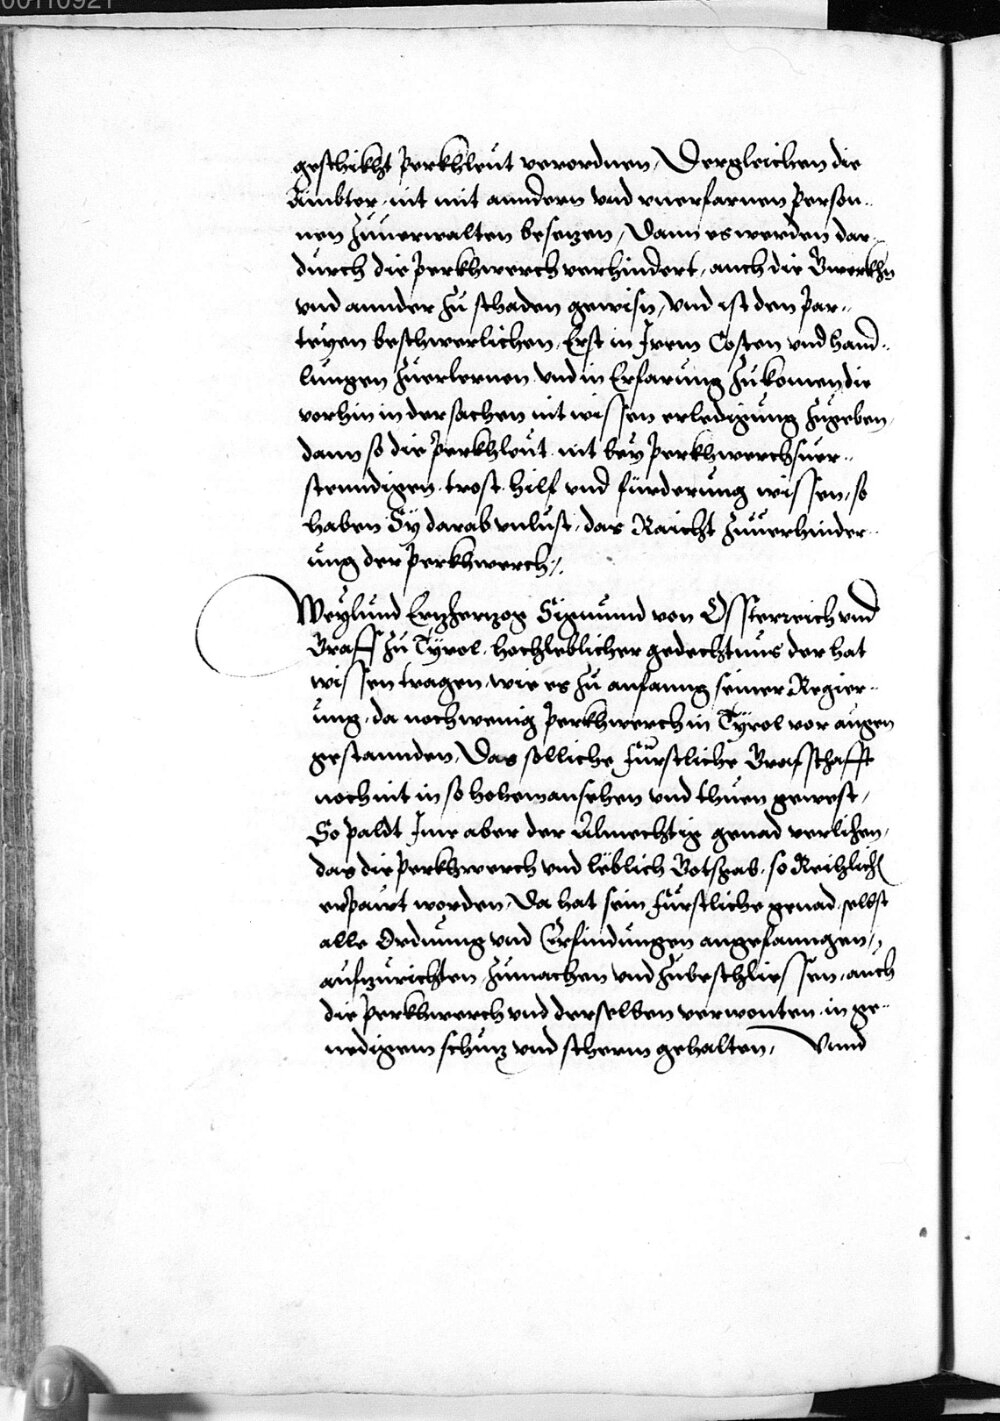 00110921
geschikht Perkhleut verordnen, Dergleichen die
Ämbter nit mit anndern vnd vnerfarnen Person-
nen zuuerwalten besetzen, Dann es werden dar-
durch die Perkhwerch verhindert, auch die Gwerkhn
vnd annder zu schaden gewisn, vnd ist den Par-
teyen beschwerlichen, Erst in Irem Costen vnd hand-
lungen zuerlernen vnd in Erfarung zu komen die
vorhin in der sachen nit wissen erledigung zugeben,
dann so die Perkhleut nit bey Perkhwerchsuer-
stenndigen trost hilf vnd fürderung wissen, so
haben Sy darab vnlust, das Raicht zuuerhinder-
ung der Perkhwerch.
Weylund Ertzhertzog Sigmund von Össterreich vnd
Graff zu Tyrol, hochleblicher gedechtnus der hat
wissen tragen, wie es zu anfanng seiner Regier-
ung, da noch wenig Perkhwerch in Tyrol vor augen
gestannden, Das solliche fürstliche Grafschafft
noch nit in so hohem ansehen vnd thuen gewest,
So paldt Ime aber der Almechtig genad verlihen,
das die Perkhwerch vnd leblich Gotsgab, so Reichlich
erpaut worden, Da hat sein fürstliche genad selbst
alle Ordnung vnd Erfindungen angefanngen,
aufzurichten zumachen vnd zubeschliessen, auch
die Perkhwerch vnd derselben verwonten in ge-
nedigem schutz vnd scherm gehalten, Vnnd